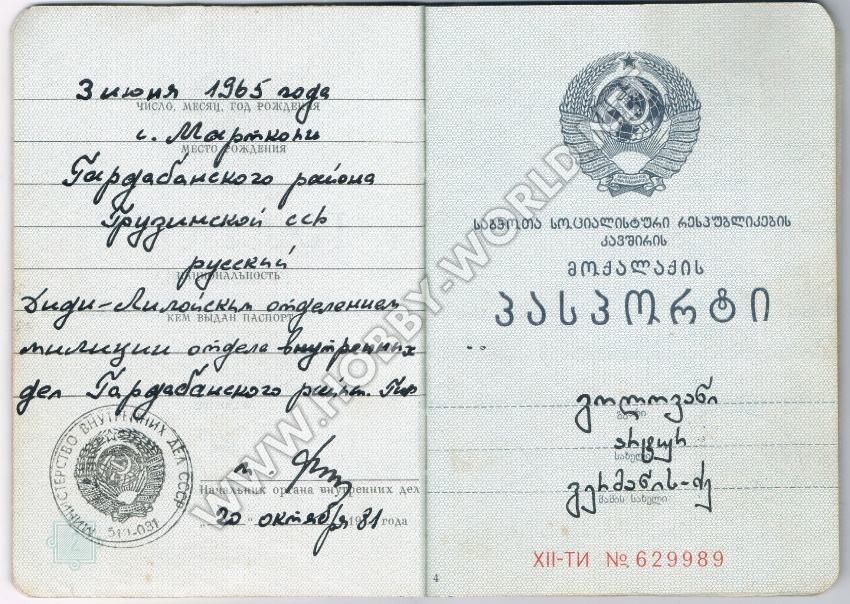 3 июня 1965 года
ЧИСЛО, МЕСЯЦ, ГОД РОЖДЕНИЯ
с. Марткопи
МЕСТО РОЖДЕНИЯ
Гардабанского района
Грузинской ССР
русский
НАЦИОНАЛЬНОСТЬ
Диди-Лилойским отделением
КЕМ ВЫДАН ПАСПОРТ
милиции отдела внутренних
дел Гардабанского
МИНИСТЕРСТВО ВНУТРЕННИХ ДЕЛ СССР
Начальник органа внутренних дел
20 октября 1981 года
საბჭოთა სოციალისტური რესპუბლიკების
კავშირის
მოქალაქის
პასპორტი
გოლოვანი
გვარი
არტურ
სახელი
გერმანის-ძე
მამის სახელი
XII-ТИ № 629989
4
WWW.HOBBY-WORLD.